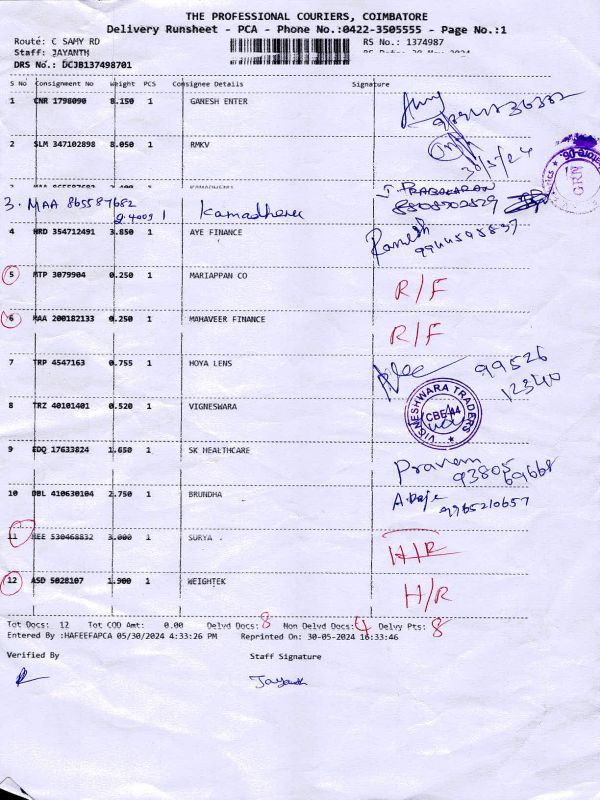 THE PROFESSIONAL COURIERS, COIMBATORE
Delivery Runsheet - PCA - Phone No.:0422-3505555 - Page No.:1
Route: C SAMY RD
RS No.: 1374987
Staff: JAYANTH
DRS No.: DCJB137498701
S No Consignment No Weight PCS Consignee Details Signature
1 CNR 1798090 8.150 1 GANESH ENTER
2 SLM 347102898 8.050 1 RMKV
30/5/24
J. PRABAKARAN
3. MAA 865587682
2.400g 1 Kamadhenu
4 HRD 354712491 3.850 1 AYE FINANCE Ramesh
5 MTP 3079904 0.250 1 MARIAPPAN CO R/F
6 MAA 200182133 0.250 1 MAHAVEER FINANCE R/F
7 TRP 4547163 0.755 1 HOYA LENS 99526
12340
8 TRZ 40101401 0.520 1 VIGNESWARA VIGNESHWARA TRADERS CBE-44
9 EDQ 17633824 1.650 1 SK HEALTHCARE Pravem 93805
69668
10 DBL 410630104 2.750 1 BRUNDHA 9965210657
11 KEE 530468832 3.000 1 SURYA H/R
12 ASD 5028107 1.900 1 WEIGHTEK H/R
Tot Docs: 12 Tot COD Amt: 0.00 Delvd Docs: 8 Non Delvd Docs: 4 Delvy Pts: 8
Entered By :HAFEEFAPCA 05/30/2024 4:33:26 PM Reprinted On: 30-05-2024 16:33:46
Verified By Staff Signature
Jayanth